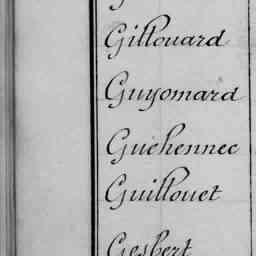 Gillouard
Guyomard
Guehennec
Guillouet
Gesbert